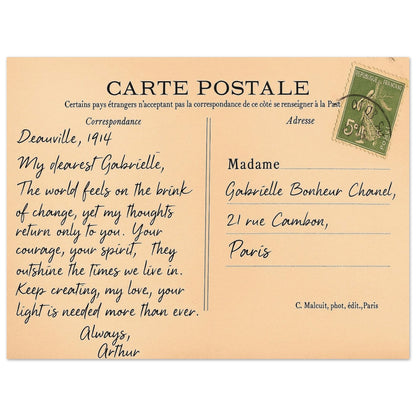 CARTE POSTALE
Certains pays étrangers n'acceptant pas la correspondance de ce côté se renseigner à la Post
Correspondance
Adresse
Deauville, 1914
My dearest Gabrielle,
The world feels on the brink
of change, yet my thoughts
return only to you. Your
courage, your spirit, They
outshine the times we live in.
Keep creating, my love, your
light is needed more than ever.
Always,
Arthur
Madame
Gabrielle Bonheur Chanel,
21 rue Cambon,
Paris
C. Malcuit, phot, édit., Paris
REPUBLIQUE FRANÇAISE
5c